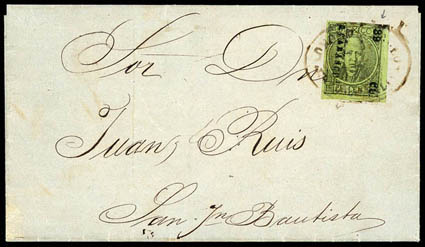 Sor Dn
Juan Ruis
San Jn Bautista